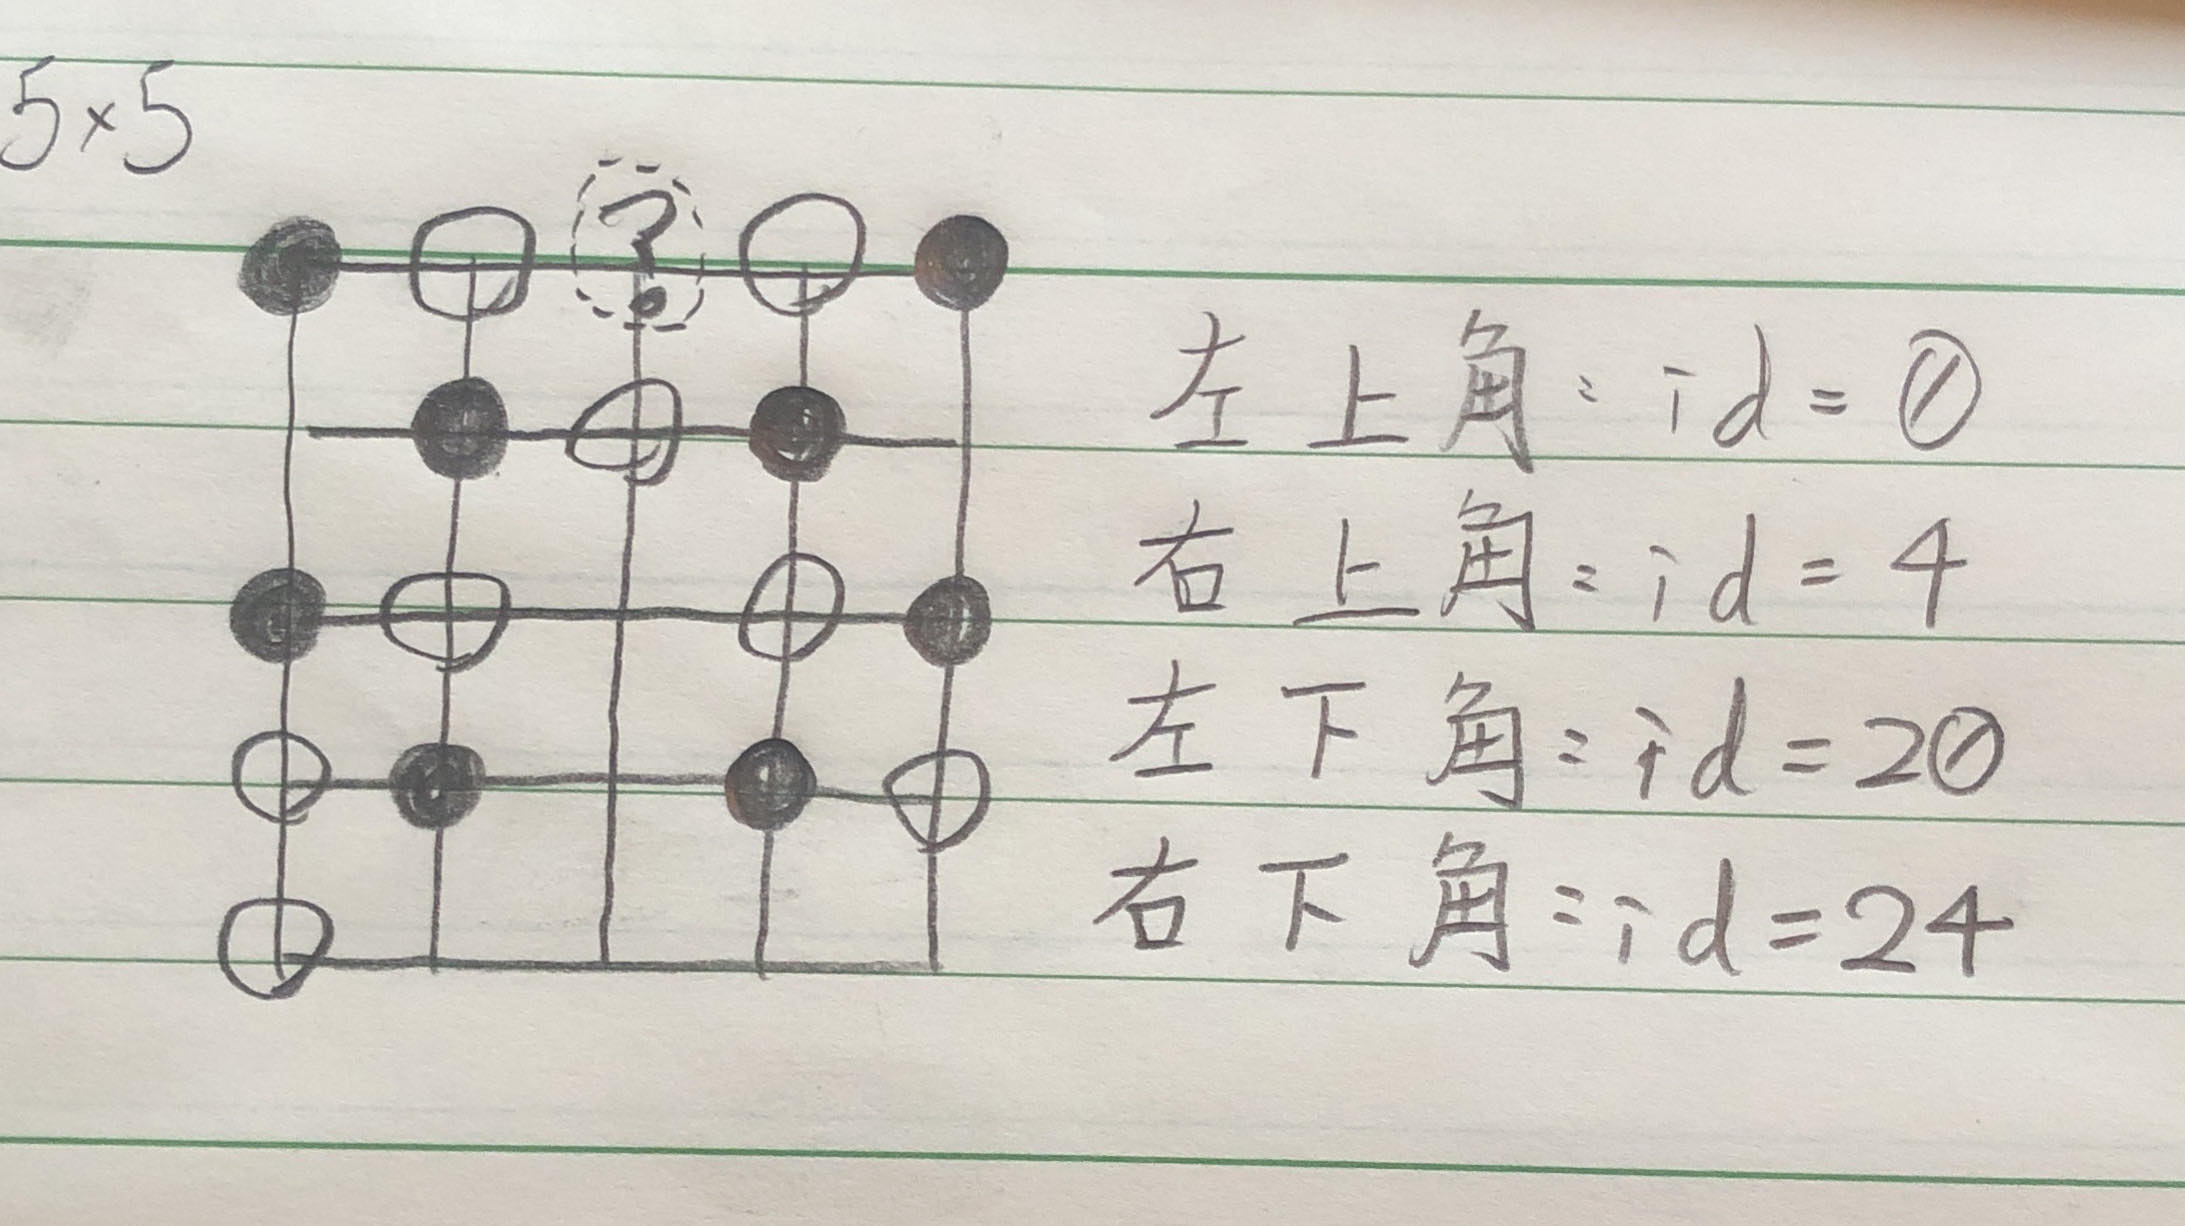 5×5
?
左上角:id=0
右上角:id=4
左下角:id=20
右下角:id=24